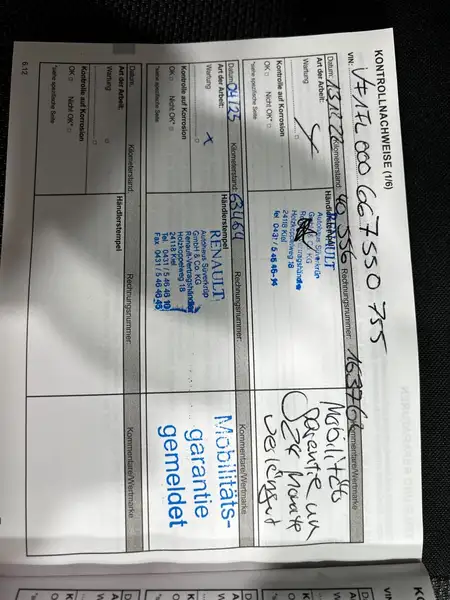 KONTROLLNACHWEISE (1/6)
VIN: VF1FL 000 667 550 755
Datum: 13.12.22 Kilometerstand: 40 356 Rechnungsnummer: 16376
Kommentare/Wertmarke
Art der Arbeit:
Wartung
Kontrolle auf Korrosion
OK Nicht OK*
*siehe spezifische Seite
Händlerstempel
RENAULT
Autohaus Süverkrüp
Holzkoppelweg 18
24118 Kiel
Tel. 0431 / 5 46 46-14
Mobilitäts
garantie um
24 Monate
verlängert
Datum: 04/25 Kilometerstand: 63464 Rechnungsnummer:
Kommentare/Wertmarke
Art der Arbeit:
Wartung
Kontrolle auf Korrosion
OK Nicht OK*
*siehe spezifische Seite
Händlerstempel
RENAULT
Autohaus Süverkrüp
GmbH & Co. KG
Renault-Vertragshändler
Holzkoppelweg 18
24118 Kiel
Tel. 0431 / 5 46 46 10
Fax 0431 / 5 46 46 45
Mobilitäts-
garantie
gemeldet
Datum: Kilometerstand: Rechnungsnummer:
Kommentare/Wertmarke
Art der Arbeit:
Wartung
Kontrolle auf Korrosion
OK Nicht OK*
*siehe spezifische Seite
Händlerstempel
6.12